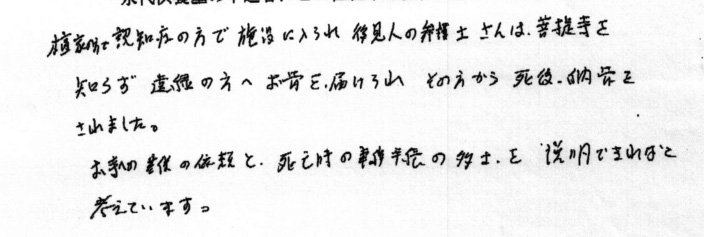 檀家様で認知症の方で施設に入られ 後見人の弁護士さんは、菩提寺を
知らず 遠縁の方へお骨を届けられ その方から 死後、納骨を
されました。
の依頼と、死亡時の事務手続の を説明できればと
考えています。